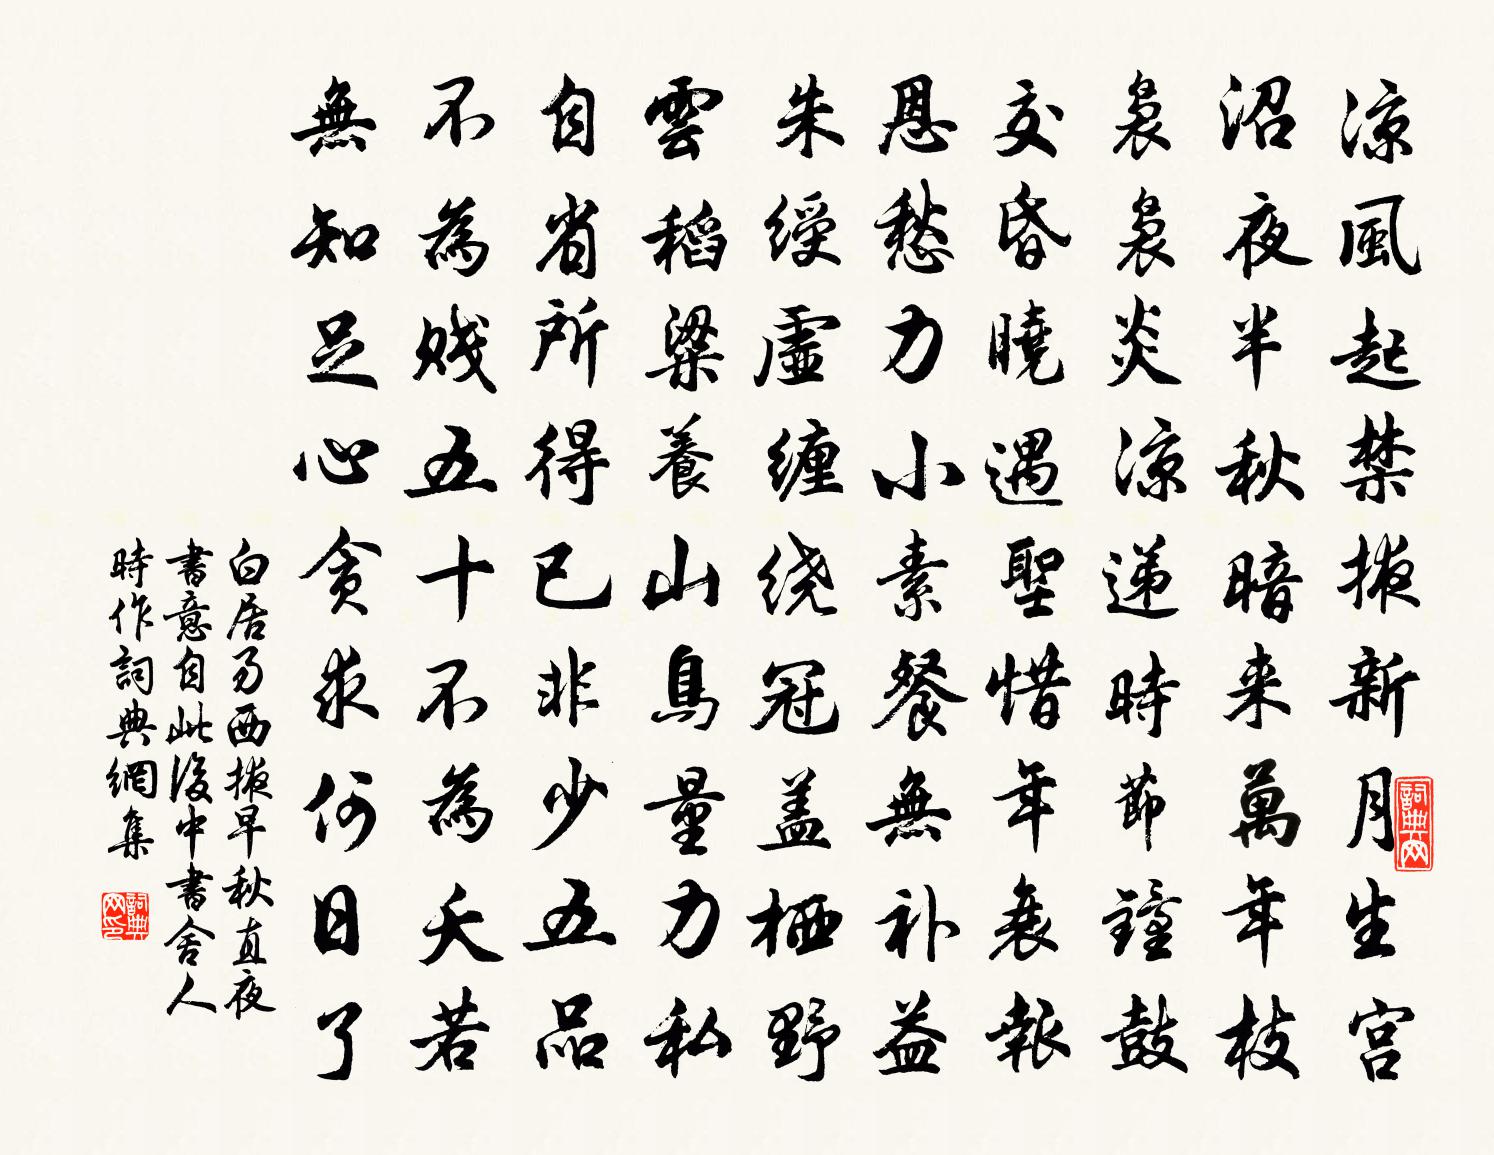 涼風起禁掖新月生宫
沼夜半秋暗来萬年枝
袅袅炎涼递時節鐘鼓
交昏曉遇聖惜年衰報
恩愁力小素餐無补益
朱綬虛缠绕冠盖栖野
雲稻粱養山鳥量力私
自省所得已非少五品
不為賤五十不為夭若
無知足心贪求何日了
白居易西掖早秋直夜
書意自此後中書舍人
時作詞典網集
詞典网
詞典网印